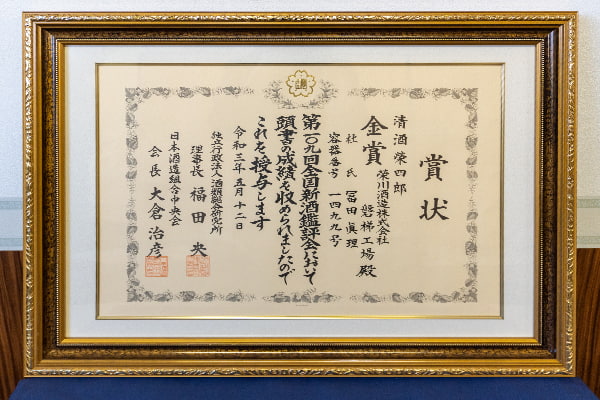 賞状
清酒 榮四郎
榮川酒造株式会社
磐梯工場 殿
金賞
杜氏 冨田眞理
容器番号 一四九九号
第一〇九回全国新酒鑑評会において
頭書の成績を収められましたので
これを授与します
令和三年五月十二日
独立行政法人酒類総合研究所
理事長 福田央
日本酒造組合中央会
会長 大倉治彦